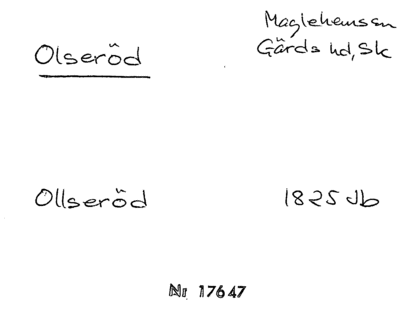 Olseröd
Maglehems sn
Gärds hd, Sk
Ollseröd
1825 db
Nr 17647